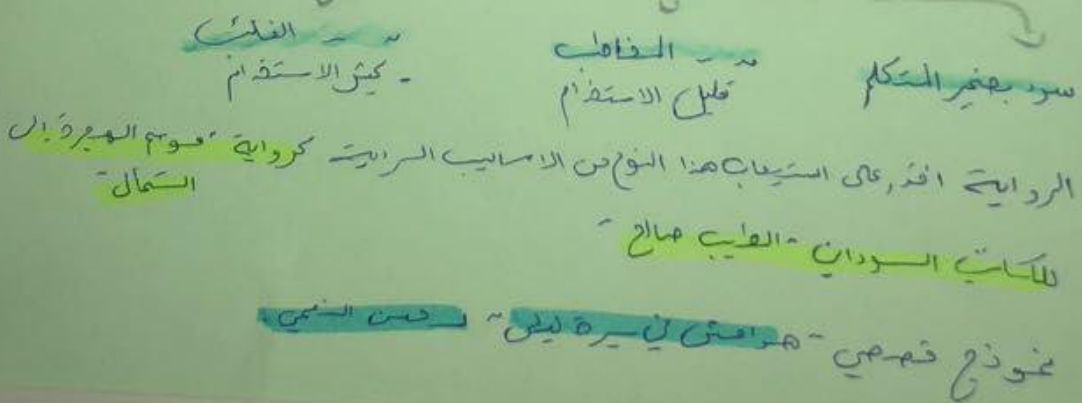 سرد بضمير المتكلم
〃 〃 المخاطب
〃 〃 الغائب
قليل الاستخدام
- كثير الاستخدام
الرواية اقدر على استيعاب هذا النوع من الاساليب السردية كرواية "موسم الهجرة إلى
الشمال"
للكاتب السوداني "الطيب صالح"
نموذج قصصي "هوامش في سيرة ليلى" لـ حسن النعمي